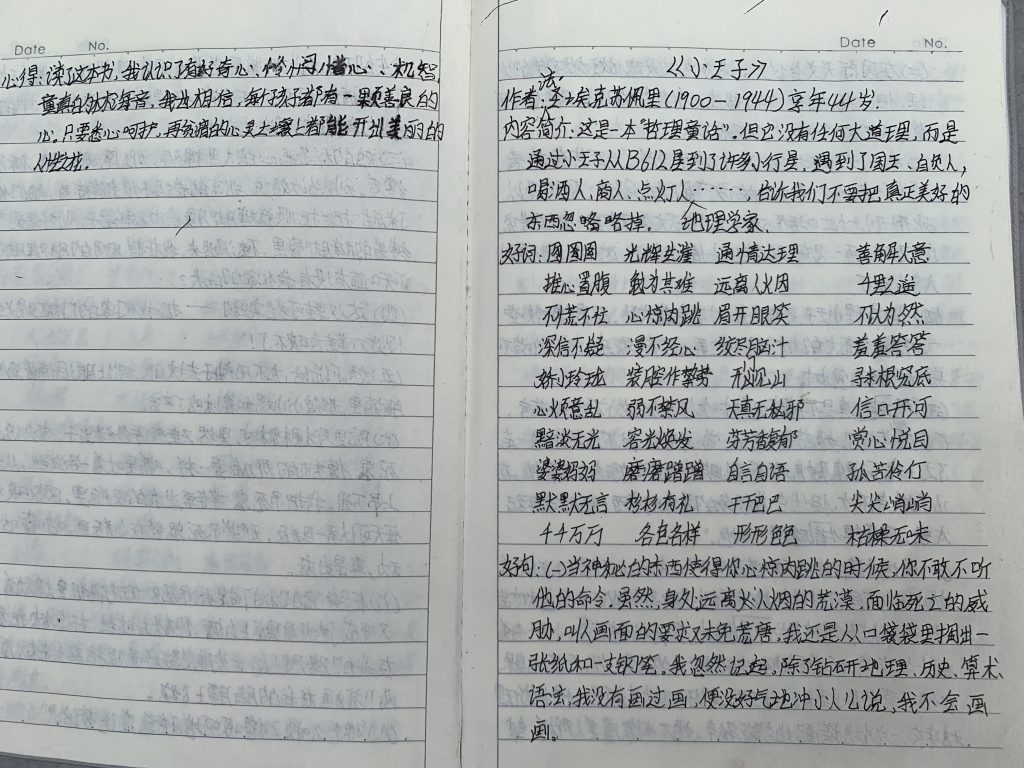 Date No.
心得:读了这本书,我认识了有好奇心、
童真的
我也相信,每个孩子都有一颗善良的
心。只要悉心呵护,再贫瘠的心灵土壤上都能开出美丽的
人性之花。
Date No.
《小王子》
作者:(法)圣·埃克苏佩里(1900-1944)享年44岁.
内容简介:这是一本"哲理童话".但它没有任何大道理,而是
通过小王子从B612星到了许多小行星,遇到了国王、自负人,
喝酒人、商人、点灯人、地理学家……,告诉我们不要把真正美好的
东西忽略略掉.
好词:圆圆圆 光辉生涯 通情达理 善解人意
推心置腹 勉为其难 远离人烟 千里之遥
不慌不忙 心惊肉跳 眉开眼笑 不以为然
深信不疑 漫不经心 绞尽脑汁 羞羞答答
娇小玲珑 装腔作势 开门见山 寻根究底
心烦意乱 弱不禁风 天真无邪 信口开河
黯淡无光 容光焕发 芬芳馥郁 赏心悦目
婆婆妈妈 磨磨蹭蹭 自言自语 孤苦伶仃
默默无言 彬彬有礼 干巴巴 尖尖峭峭
千千万万 各色各样 形形色色 枯燥无味
好句:(一)当神秘的东西使得你心惊肉跳的时候,你不敢不听
他的命令.虽然,身处远离人烟的荒漠,面临死亡的威
胁,叫人画画的要求又未免荒唐,我还是从口袋里掏出一
张纸和一支钢笔.我忽然记起,除了钻研地理、历史、算术、
语法,我没有画过画,便没好气地冲小人儿说,我不会画
画。